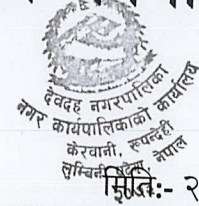 देवदह नगरपालिका
नगर कार्यपालिकाको कार्यालय
केरवानी, रूपन्देही
लुम्बिनी नेपाल
मितिः- २